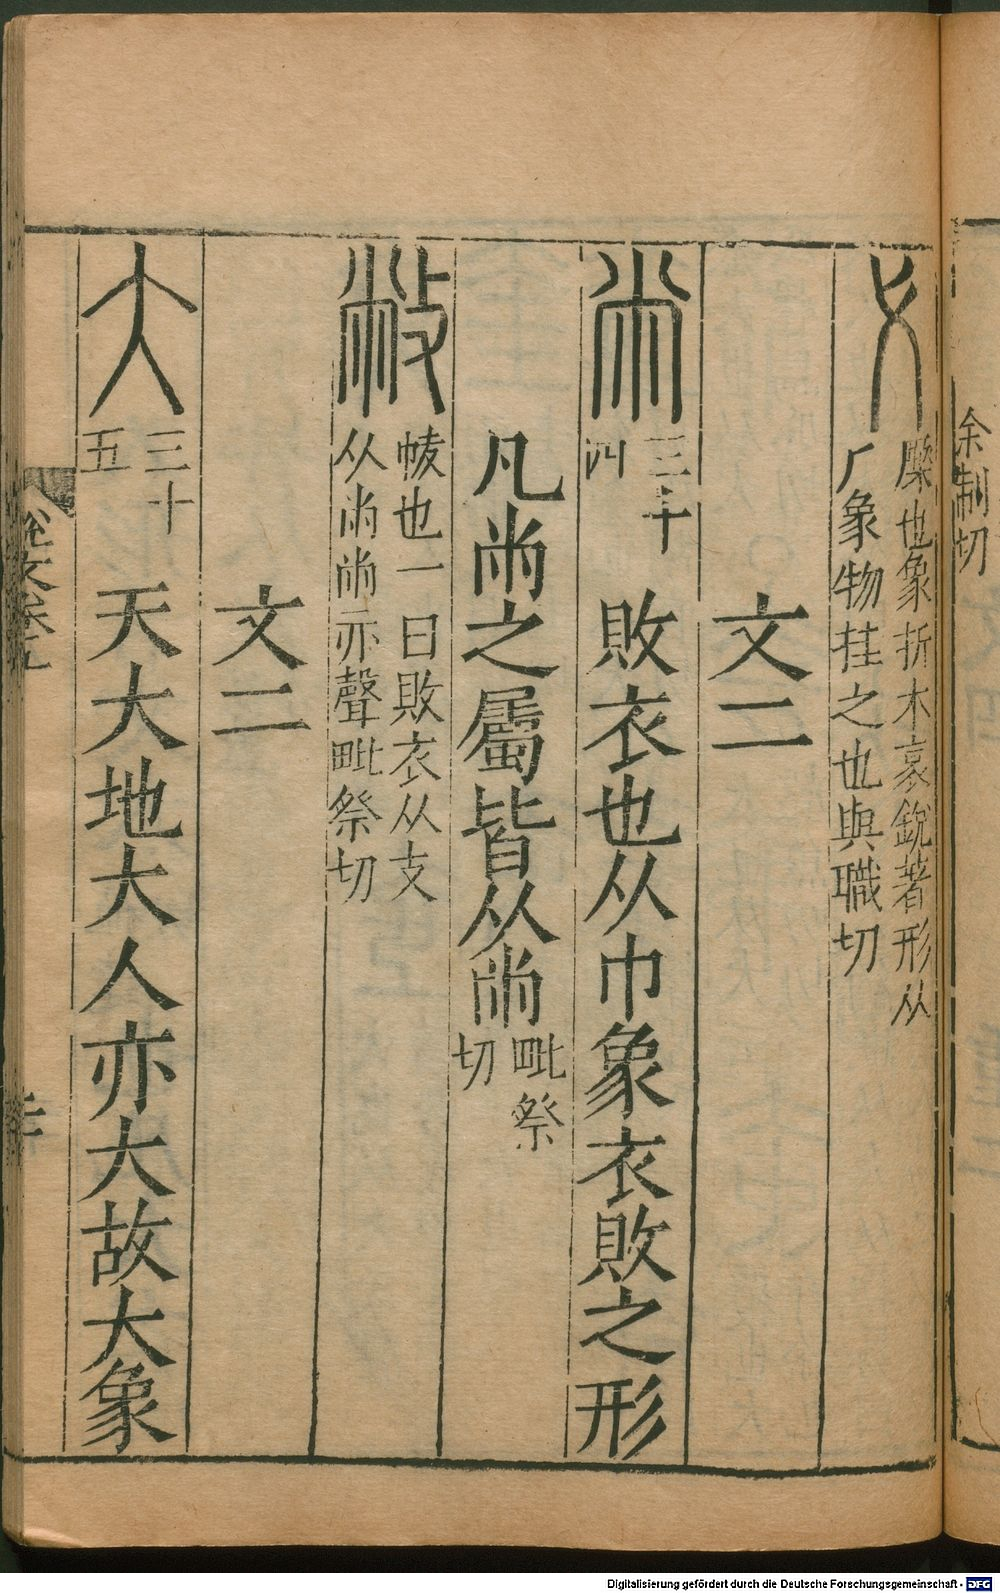 余制切
弋
橜也象折木衺銳著形从
厂象物挂之也與職切
文二
㡀
三十
四
敗衣也从巾象衣敗之形
凡㡀之屬皆从㡀
毗祭
切
敝
帗也一曰敗衣从攴
从㡀㡀亦聲毗祭切
文二
大
三十
五
天大地大人亦大故大象
說文卷五
Digitalisierung gefördert durch die Deutsche Forschungsgemeinschaft - DFG